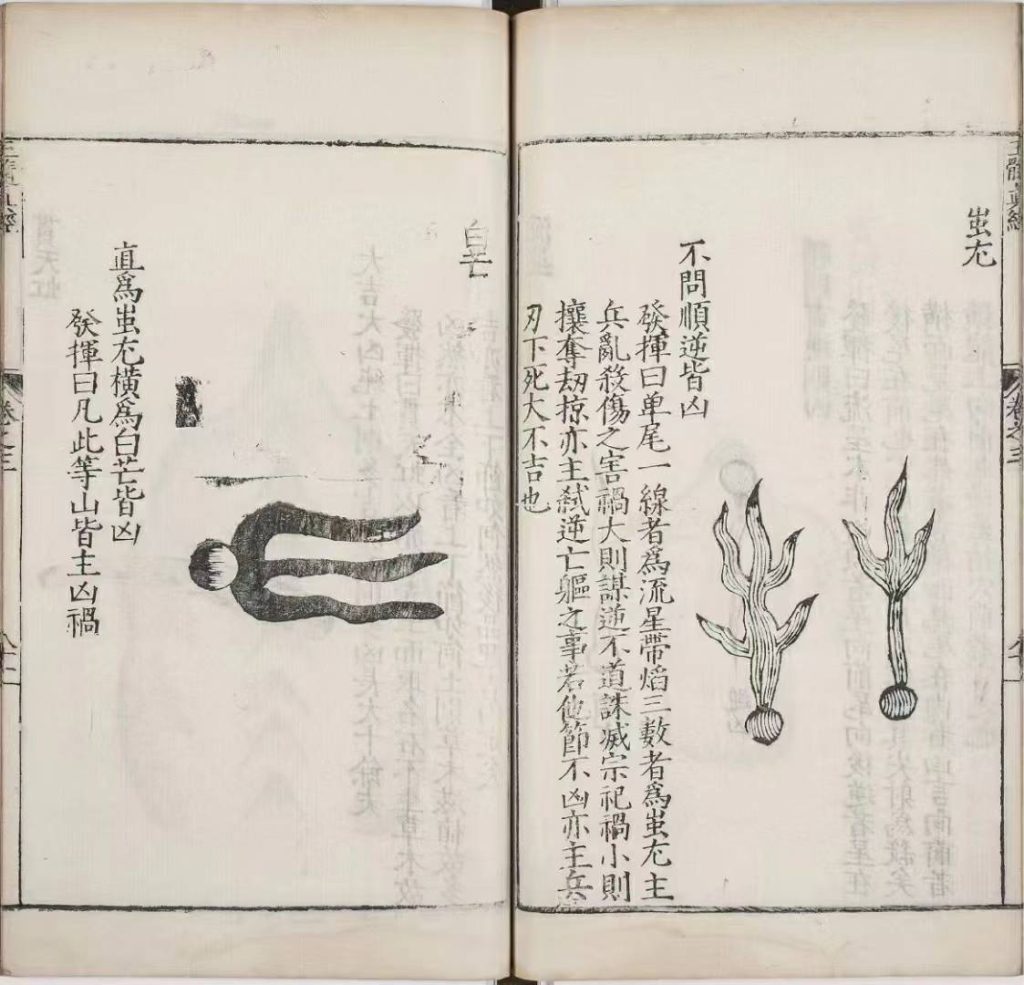 玉髓真經
蚩尤
不問順逆皆凶
發揮曰单尾一線者爲流星帶焰三數者爲蚩尤主
兵亂殺傷之害禍大則謀逆不道誅滅宗祀禍小則
攘奪刼掠亦主弑逆亡軀之事若他節不凶亦主兵
刃下死大不吉也
卷之三
白芒
直爲蚩尤橫爲白芒皆凶
發揮曰凡此等山皆主凶禍
卷之三